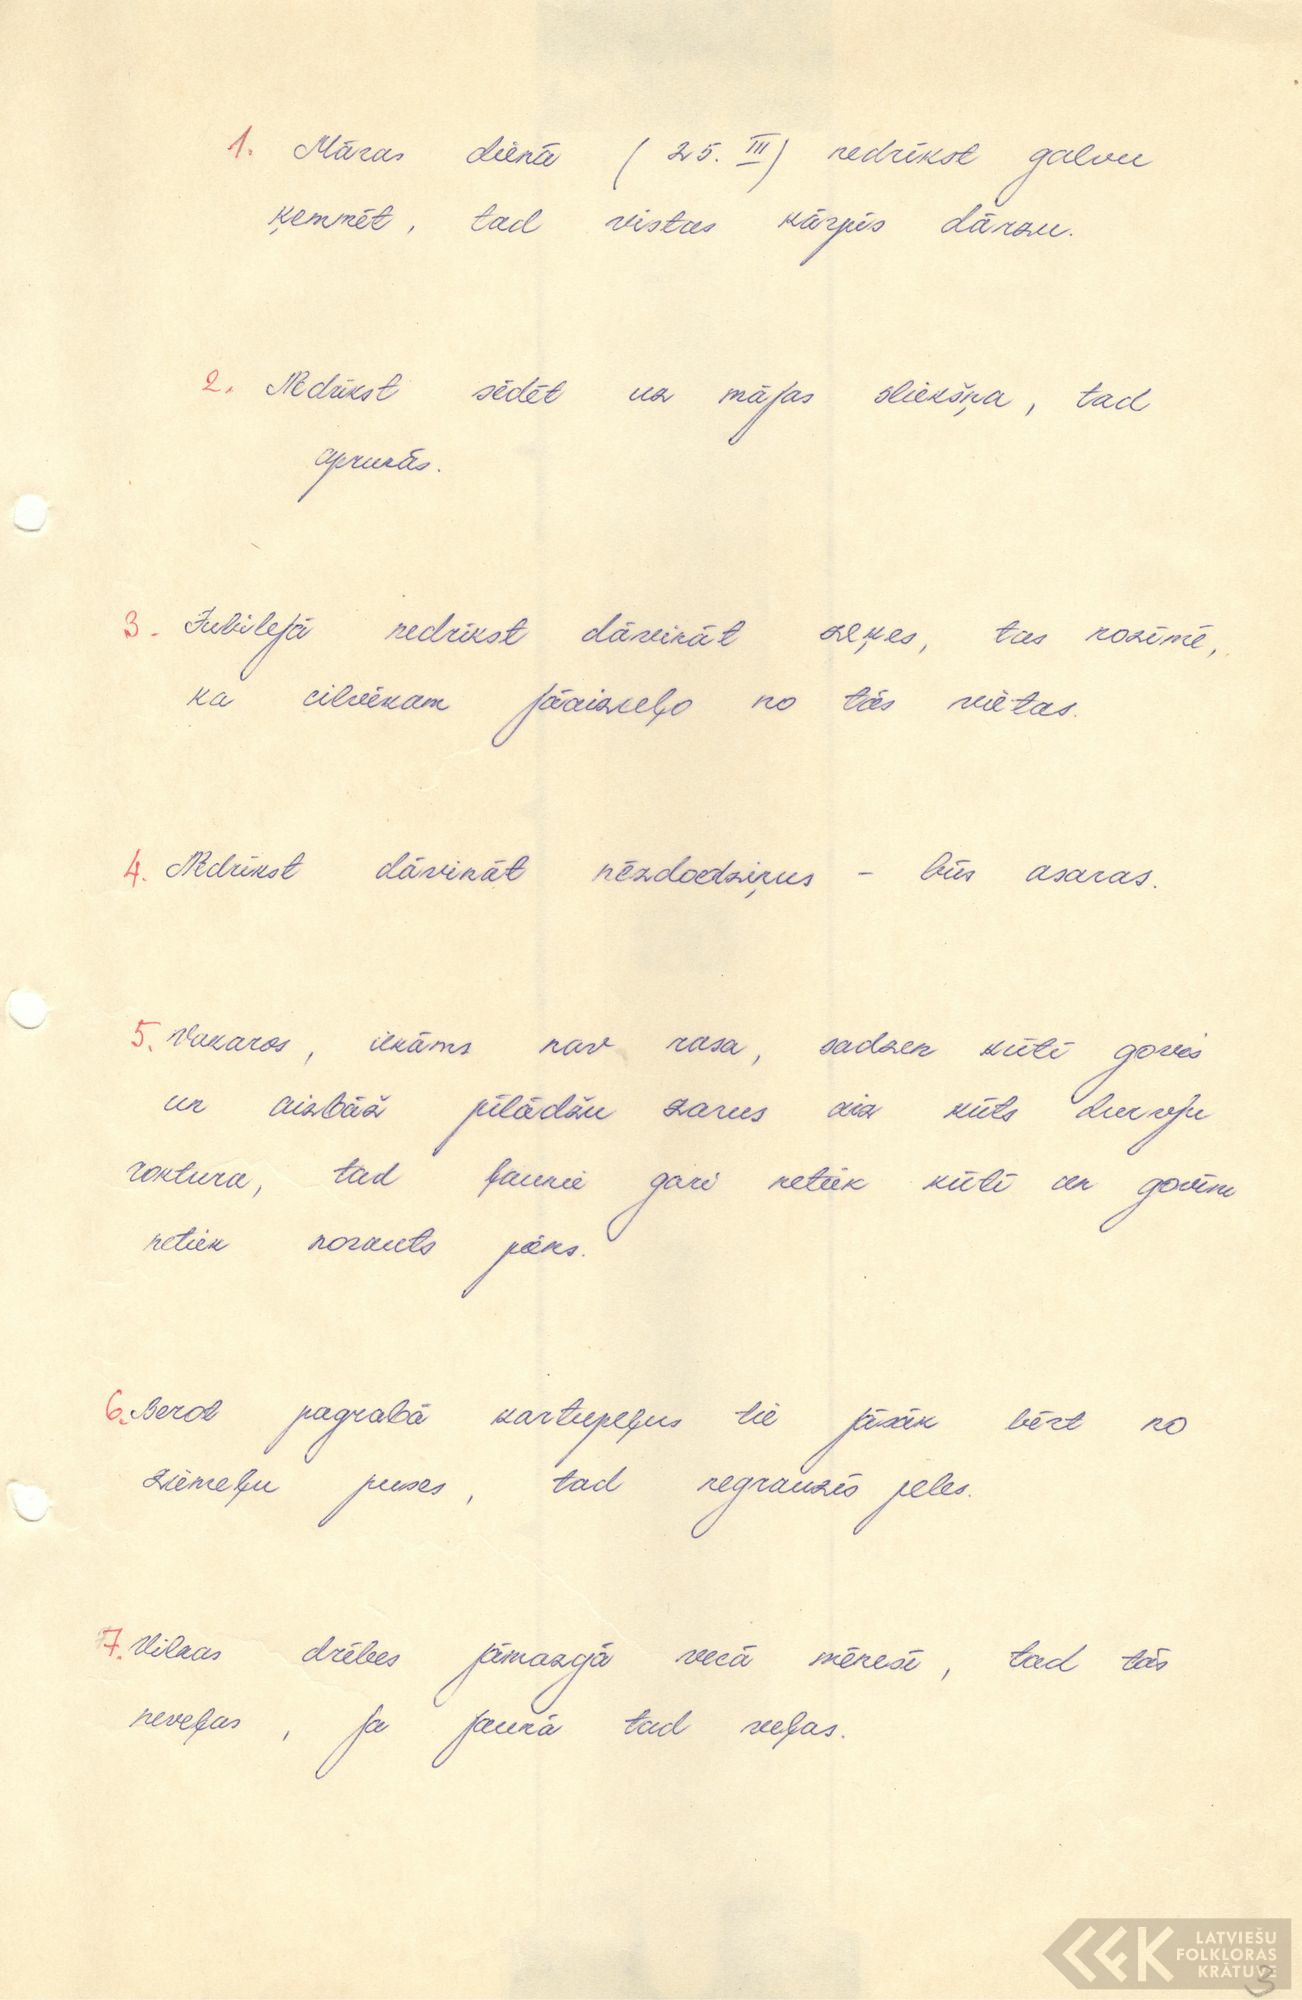 1. Māras dienā (25. III) nedrīkst galvu
ķemmēt, tad vistas kārpīs dārzu.
2. Nedrīkst sēdēt uz mājas sliekšņa, tad
aprunās.
3. Jubilejā nedrīkst dāvināt zeķes, tas nozīmē,
ka cilvēkam jāaizceļo no tās vietas.
4. Nedrīkst dāvināt nēzdodziņus - būs asaras.
5. Vakaros, iekāms nav rasa, sadzen kūtī govis
un aizbāž pīlādžu zarus aiz kūts durvju
roktura, tad ļaunie gari netiek kūtī un govīm
netiek norauts piens.
6. Berot pagrabā kartupeļus tie jāsāk bērt no
ziemeļu puses, tad negrauzīs peles.
7. Vilnas drēbes jāmazgā vecā mēnesī, tad tās
neveļas, ja jaunā tad veļas.
LATVIEŠU
FOLKLORAS
KRĀTUVE
3